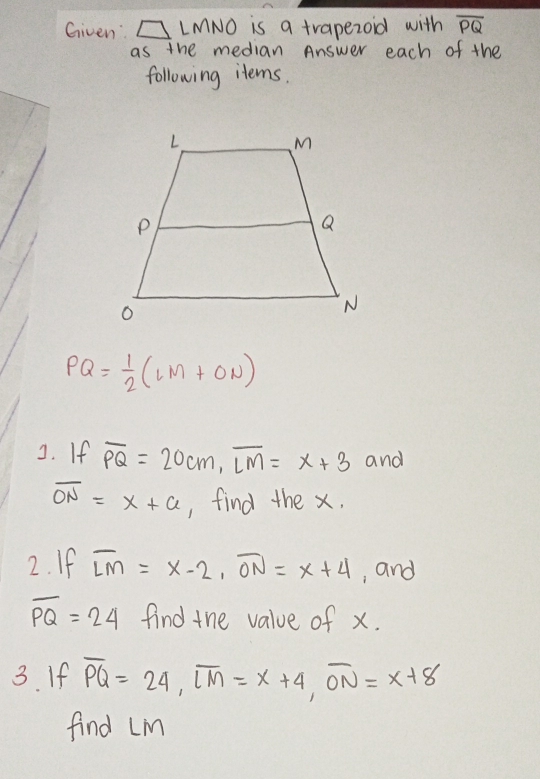 Given: ▱ LMNO is a trapezoid with P̅Q̅
as the median Answer each of the
following items.
L M
P Q
O N
PQ = ½ (LM + ON)
1. If P̅Q̅ = 20cm, L̅M̅ = x + 3 and
O̅N̅ = x + a, find the x.
2. If L̅M̅ = x - 2, O̅N̅ = x + 4, and
P̅Q̅ = 24 find the value of x.
3. If P̅Q̅ = 24, L̅M̅ = x + 4, O̅N̅ = x + 8
find LM